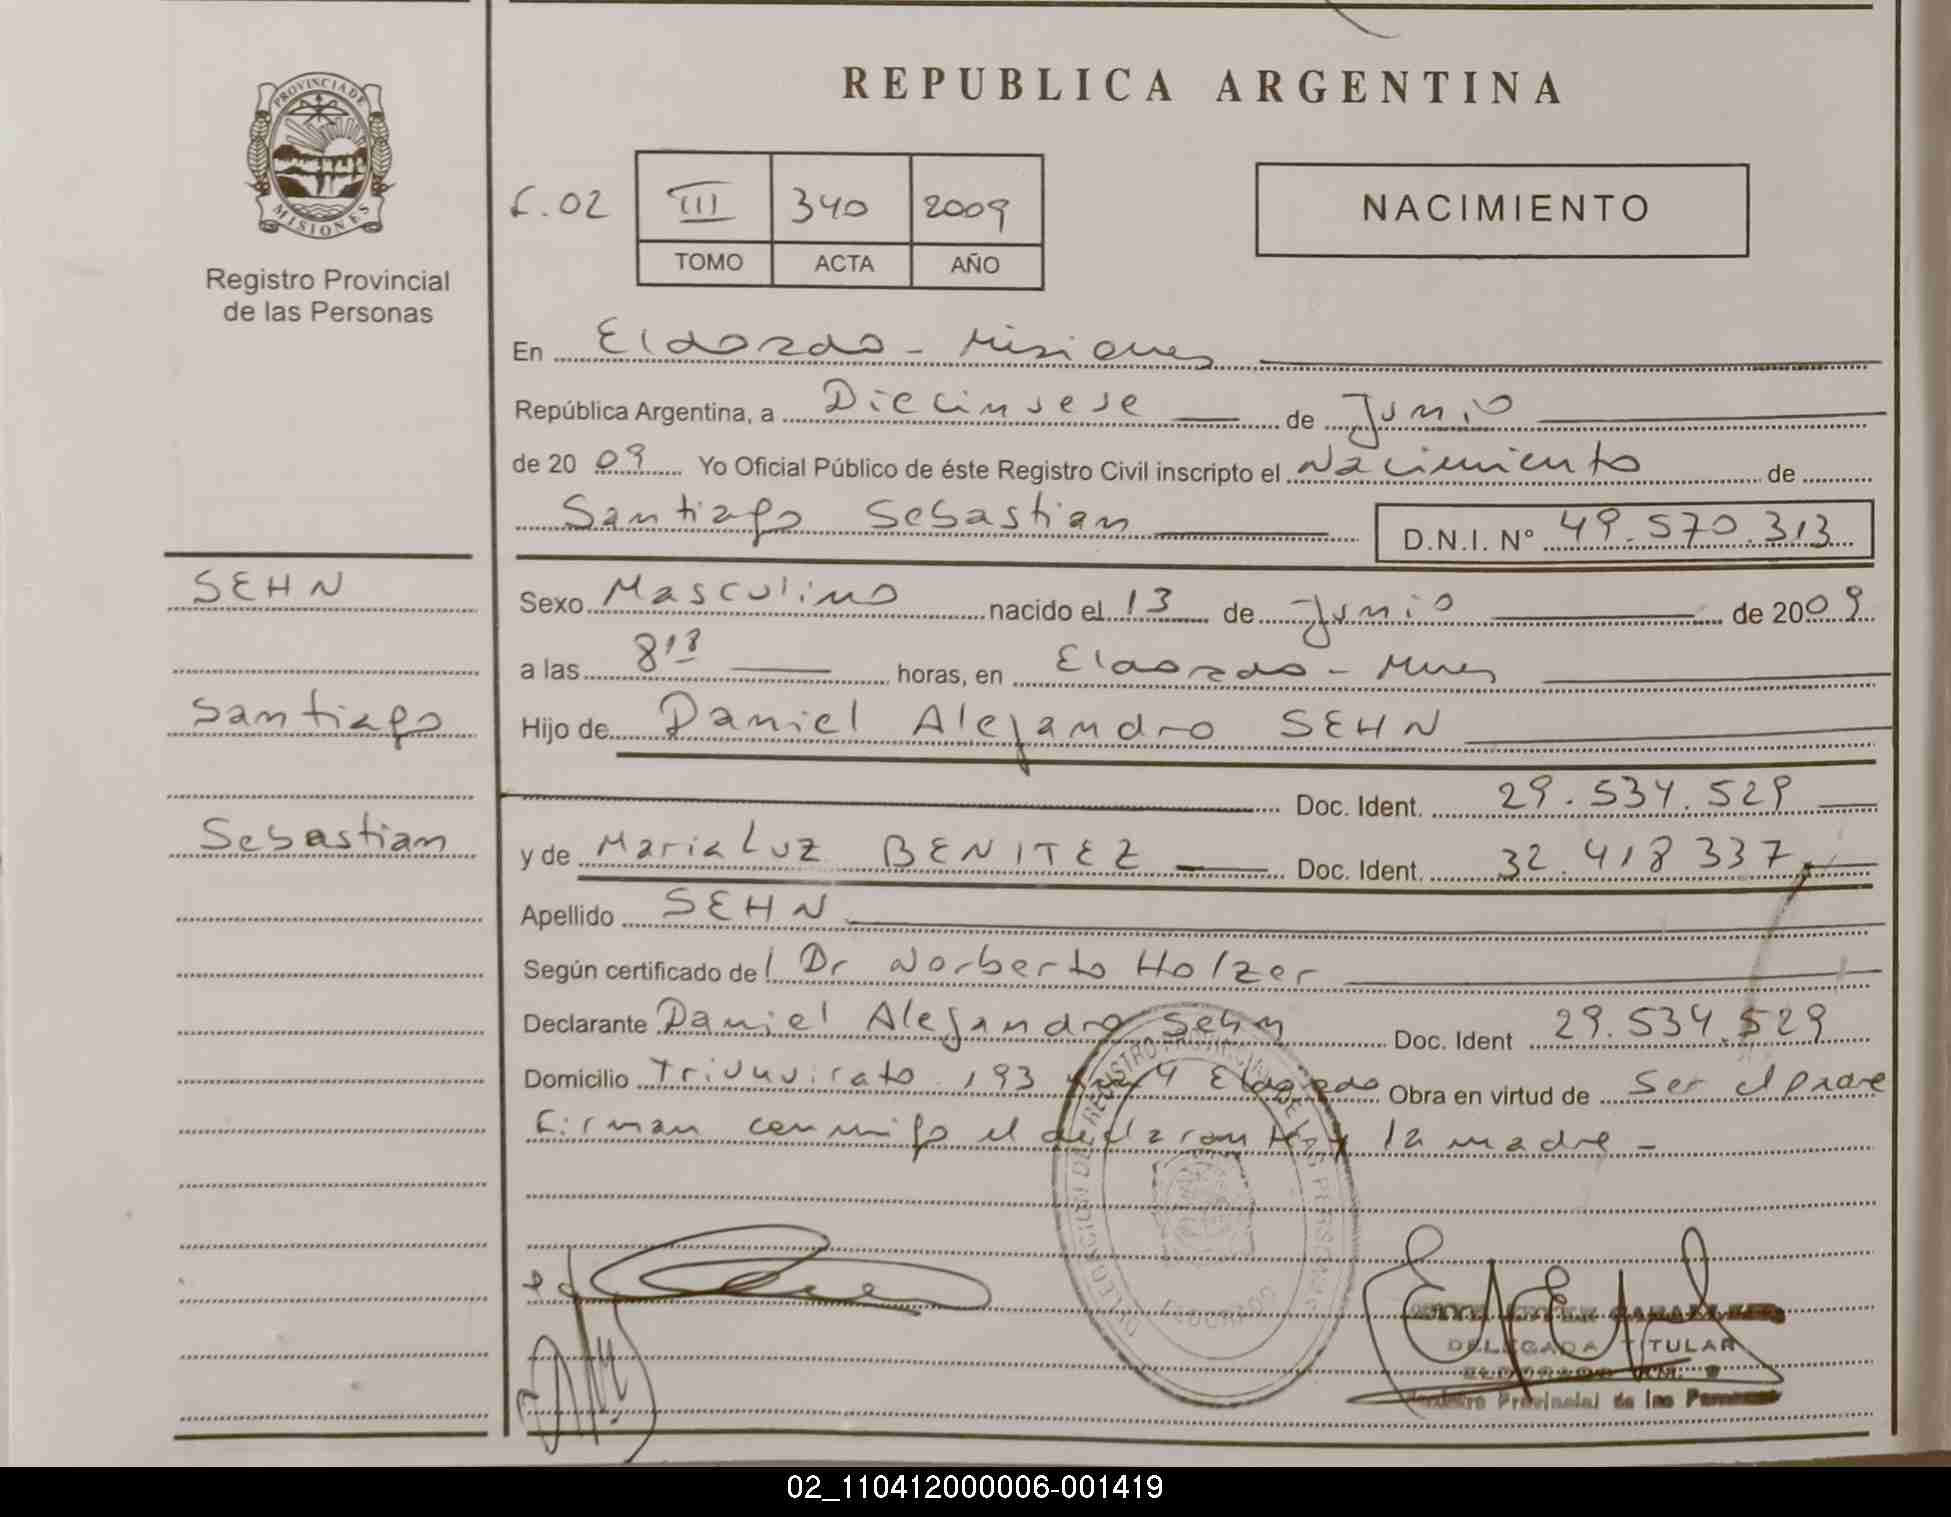 PROVINCIA DE
MISIONES
Registro Provincial
de las Personas
REPUBLICA ARGENTINA
F.02 III 340 2009
TOMO ACTA AÑO
NACIMIENTO
En Eldorado - Misiones
República Argentina, a Diecinueve de Junio
de 2009 Yo Oficial Público de éste Registro Civil inscripto el Nacimiento de
Santiago Sebastian D.N.I. Nº 49.570.313
SEHN
Santiago
Sebastian
Sexo Masculino nacido el 13 de Junio de 2009
a las horas, en Eldorado - Mnes
Hijo de Daniel Alejandro SEHN
Doc. Ident. 29.534.529
y de Maria Luz BENITEZ Doc. Ident. 32.418337
Apellido SEHN
Según certificado de Dr Norberto Holzer
Declarante Daniel Alejandro Sehn Doc. Ident 29.534.529
Domicilio 193 Eldorado Obra en virtud de Ser el padre
Firman conmigo el declarante y la madre -
DELEGADA TITULAR
Registro Provincial de las Personas
02_110412000006-001419